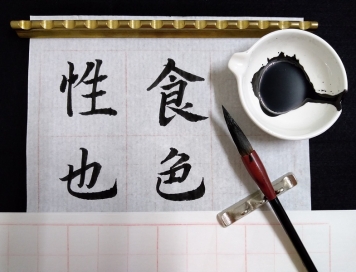 食色
性也